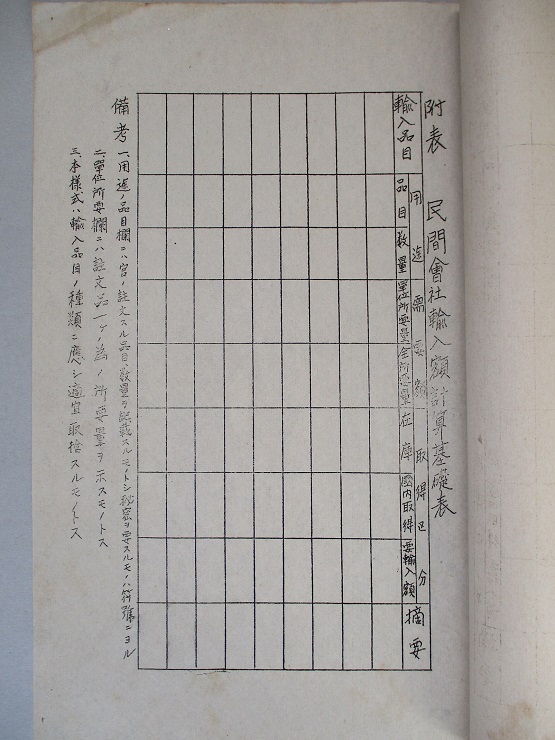 附表　民間會社輸入額計算基礎表
輸入品目
用途需要額
品目
數量
單位所要量
全所要量
取得區分
在庫
國内取得
要輸入額
摘要
備考　一、用途ノ品目欄ニハ官ノ註文スル品目、數量ヲ記載スルモノトシ秘密ヲ要スルモノハ符號ニヨル
二、單位所要欄ニハ註文品一ケノ為ノ所要量ヲ示スモノトス
三、本樣式ハ輸入品目ノ種類ニ應シ適宜取捨スルモノトス